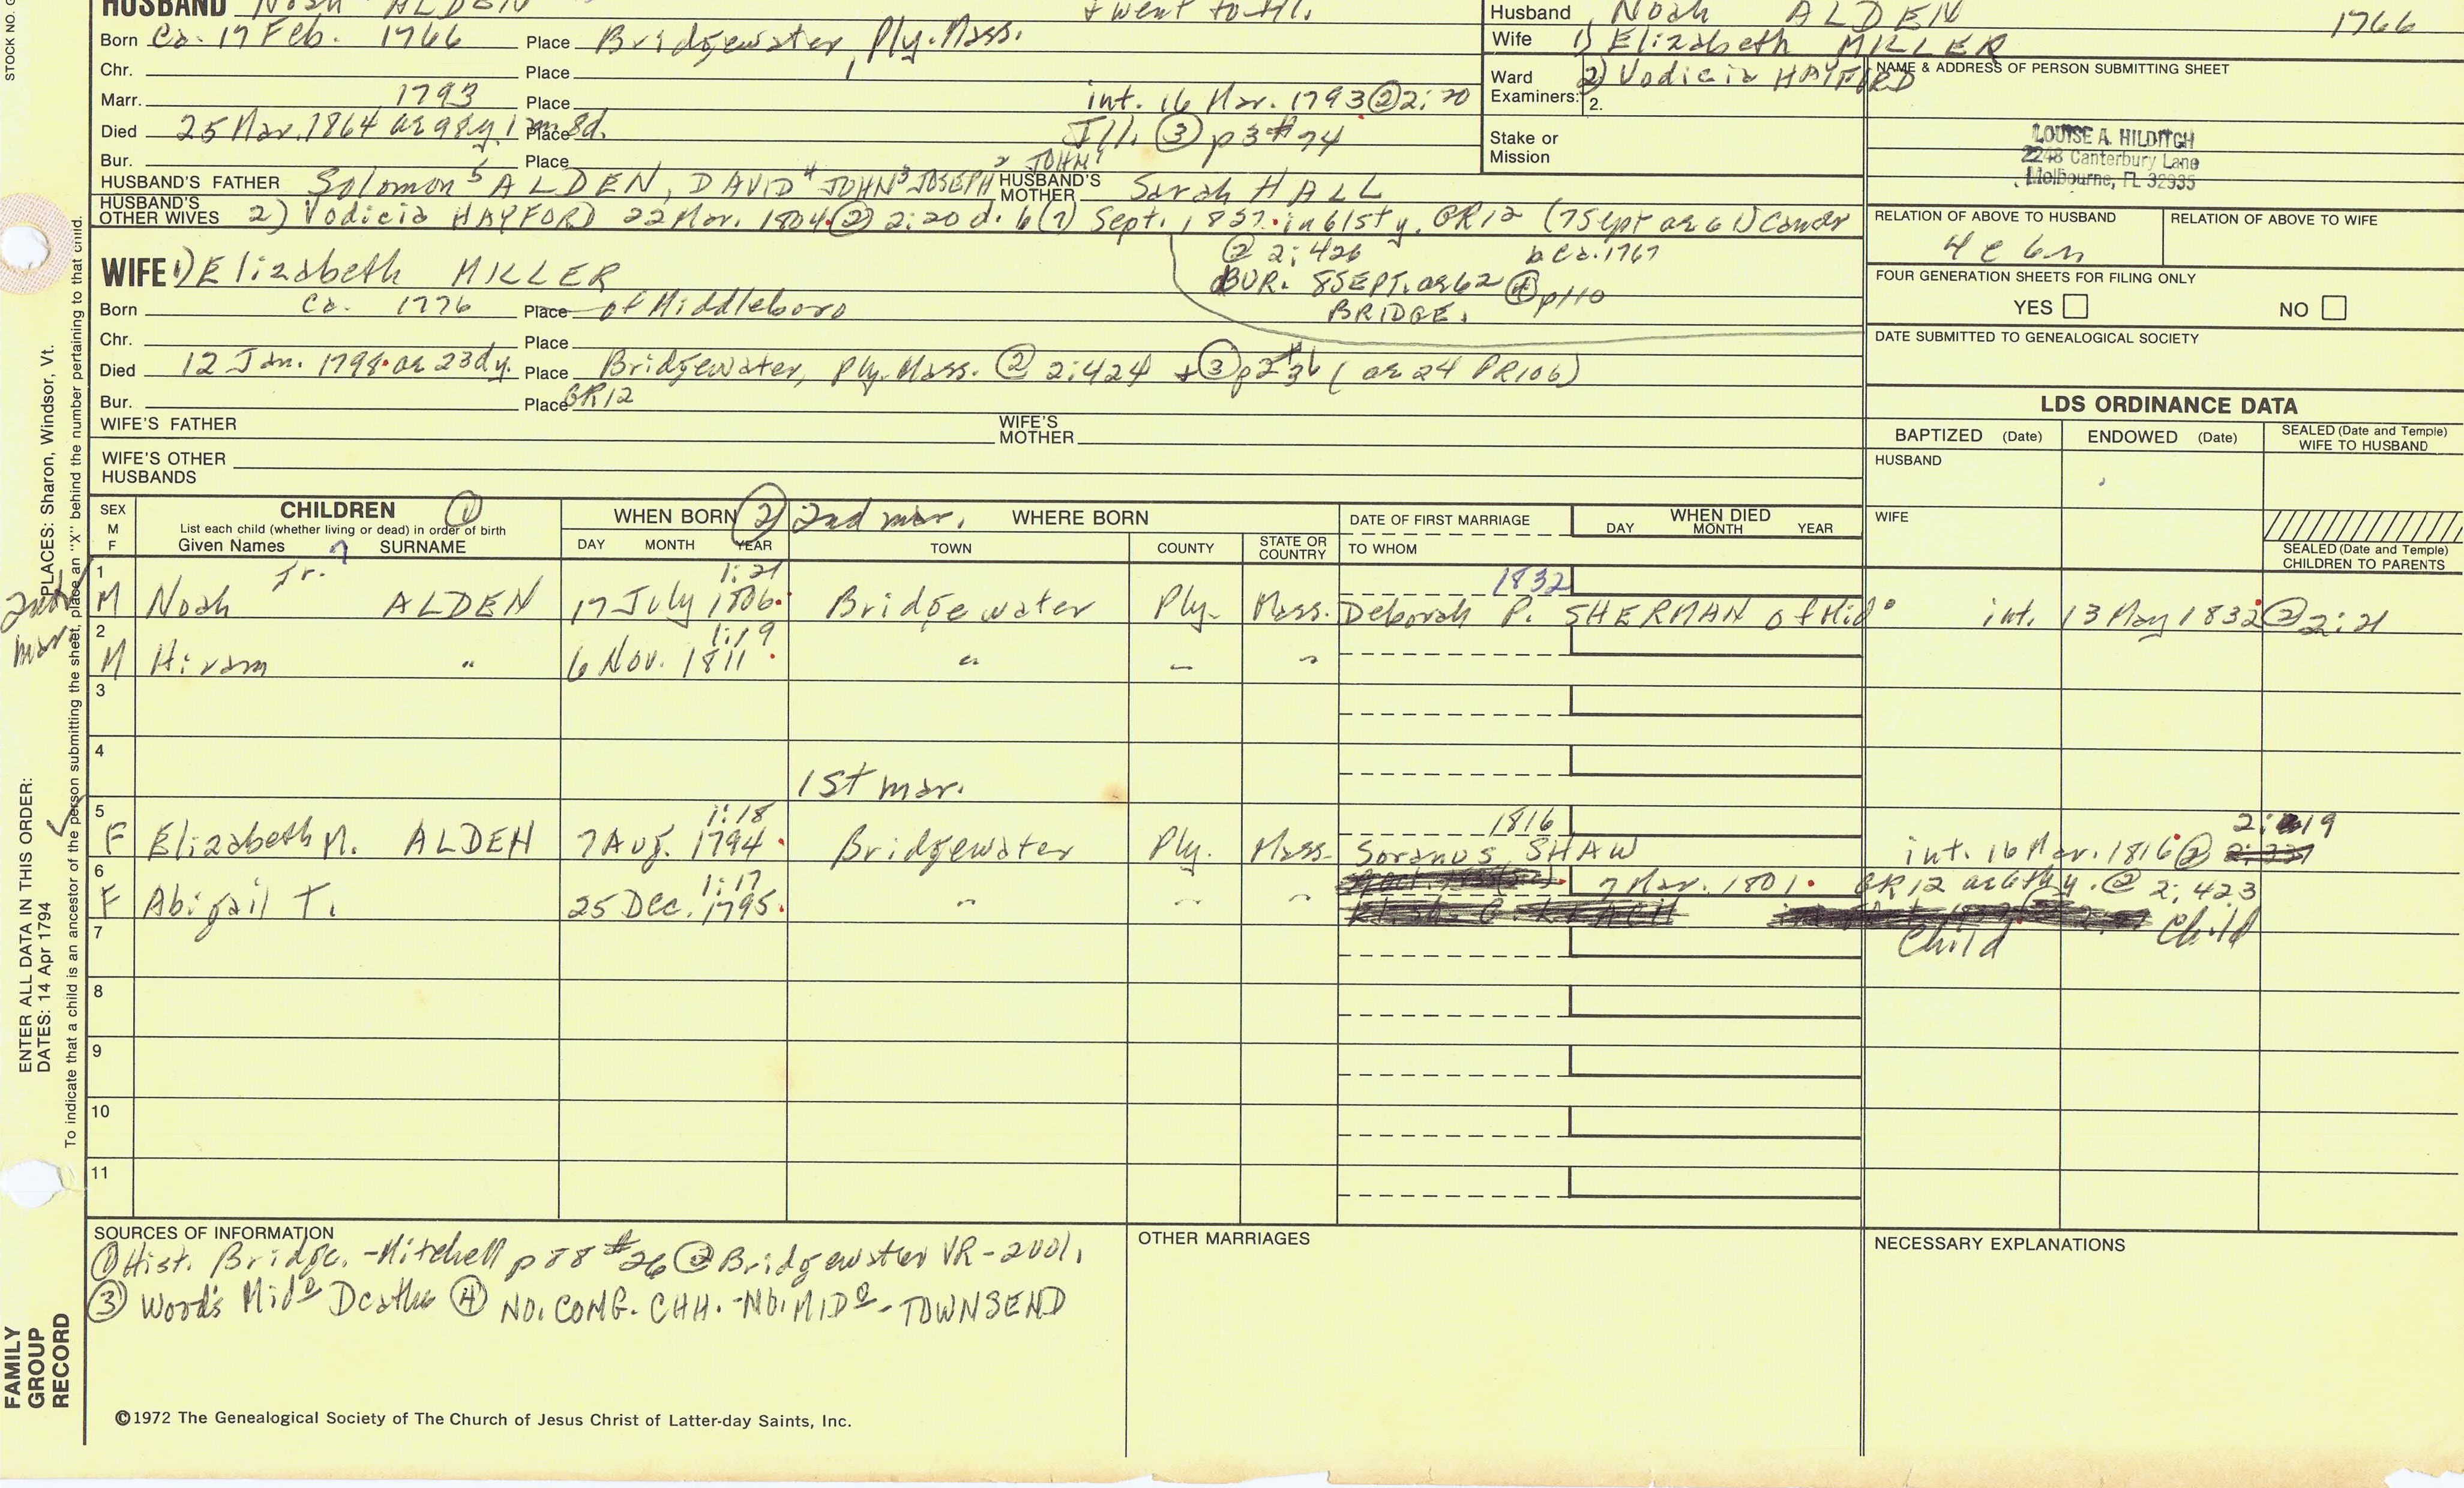 STOCK NO. G
HUSBAND Noah ALDEN + went to Ill.
Born Ca. 17 Feb. 1766 Place Bridgewater, Ply. Mass.
Chr. Place
Marr. 1793 Place int. 16 Mar. 1793 ② 2:20
Died 25 Mar. 1864 ae 98y 1m 8d. Place Ill. ③ p3 #74
Bur. Place
HUSBAND'S FATHER Solomon⁵ ALDEN, DAVID⁴ JOHN³ JOSEPH² JOHN¹ HUSBAND'S MOTHER Sarah HALL
HUSBAND'S OTHER WIVES 2) Vodicia HAYFORD 22 Mar. 1804. ② 2:20 d. 6(7) Sept. 1837. in 61st y. GR12 (7 Sept ae 61) Cancer
@ 2:426 b ca. 1767
BUR. 8 SEPT. ae 62 ④ p110
BRIDGE.
WIFE 1) Elizabeth MILLER
Born Ca. 1776 Place of Middleboro
Chr. Place
Died 12 Jan. 1798. ae 23d y. Place Bridgewater, Ply. Mass. ② 2:424 + ③ p2 #36 (ae 24 PR106)
Bur. Place GR12
WIFE'S FATHER WIFE'S MOTHER
WIFE'S OTHER HUSBANDS
Husband Noah ALDEN 1766
Wife 1) Elizabeth MILLER
Ward Examiners: 2) Vodicia HAYFORD
2.
Stake or Mission
NAME & ADDRESS OF PERSON SUBMITTING SHEET
LOUISE A. HILDITCH
2248 Canterbury Lane
Melbourne, FL 32935
RELATION OF ABOVE TO HUSBAND RELATION OF ABOVE TO WIFE
4 c 6 n
FOUR GENERATION SHEETS FOR FILING ONLY
YES NO
DATE SUBMITTED TO GENEALOGICAL SOCIETY
LDS ORDINANCE DATA
BAPTIZED (Date) ENDOWED (Date) SEALED (Date and Temple) WIFE TO HUSBAND
HUSBAND
WIFE
SEALED (Date and Temple) CHILDREN TO PARENTS
SEX M F
CHILDREN ①
List each child (whether living or dead) in order of birth
Given Names SURNAME
WHEN BORN ② 2nd mar. WHERE BORN
DAY MONTH YEAR TOWN COUNTY STATE OR COUNTRY
DATE OF FIRST MARRIAGE
TO WHOM
WHEN DIED
DAY MONTH YEAR
2nd mar.
1 Jr. 1:21 1832
M Noah ALDEN 17 July 1806. Bridgewater Ply. Mass. Deborah P. SHERMAN of Mido int. 13 May 1832 ② 2:21
2 1:19
M Hiram " 6 Nov. 1811. " " "
3
4
1st mar.
5 1:18 1816 2:19
F Elizabeth M. ALDEN 7 Aug. 1794. Bridgewater Ply. Mass. Soranus SHAW int. 16 Mar. 1816 ②
6 1:17 7 Mar. 1801. GR12 @ 2:423
F Abigail T. 25 Dec. 1795. " " "
Child Child
7
8
9
10
11
SOURCES OF INFORMATION
① Hist. Bridge. - Mitchell p88 #26 ② Bridgewater VR - 2vol.
③ Wood's Mido Deaths ④ NO. CONG. CHH. - NO. MIDo - TOWNSEND
OTHER MARRIAGES
NECESSARY EXPLANATIONS
©1972 The Genealogical Society of The Church of Jesus Christ of Latter-day Saints, Inc.
FAMILY GROUP RECORD
ENTER ALL DATA IN THIS ORDER:
DATES: 14 Apr 1794
PLACES: Sharon, Windsor, Vt.
To indicate that a child is an ancestor of the person submitting the sheet, place an "X" behind the number pertaining to that child.